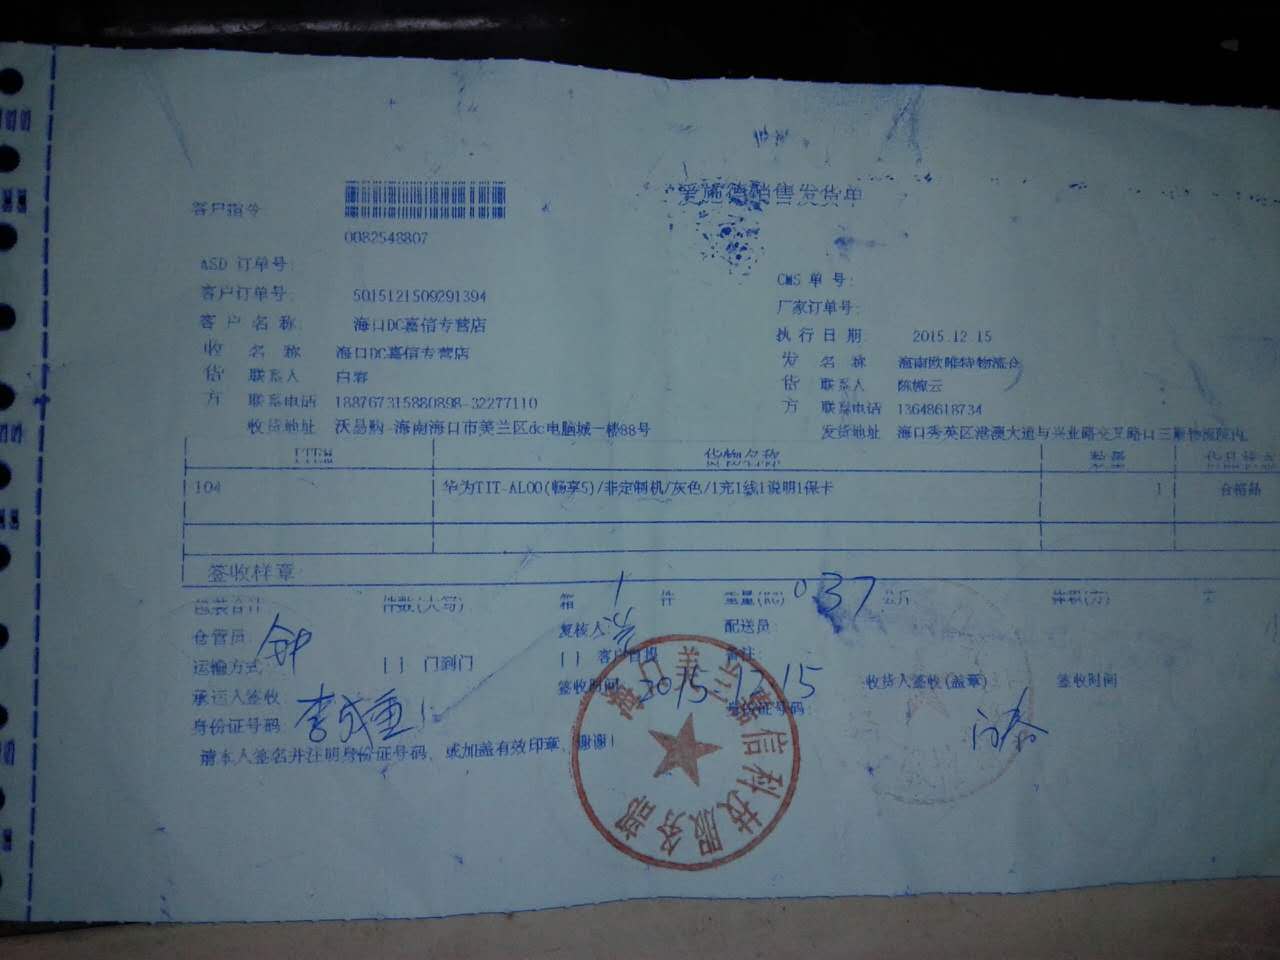 爱施德销售发货单
客户指令
0082548807
ASD 订单号:
CMS 单号:
客户订单号: 5015121509291394
厂家订单号:
客户名称: 海口DC嘉信专营店
执行日期: 2015.12.15
收 名称 海口DC嘉信专营店
发 名称 海南欧唯特物流仓
货 联系人 白春
货 联系人
方 联系电话 188767315880898-32277110
方 联系电话 13648618734
收货地址 沃易购-海南海口市美兰区dc电脑城一楼88号
发货地址 海口秀英区港澳大道与兴业路交叉路口三顺物流院内
ITEM 货物名称 数量 货品状态
104 华为TIT-AL00(畅享5)/非定制机/灰色/1充1线1说明1保卡 1 合格品
签收样章
包装合计 件数(大写) 箱 1 件 重量(KG) 0.37 公斤 体积(方)
仓管员: 复核人: 配送员:
运输方式: [ ] 门到门 [ ] 客户自提 备注:
承运人签收 李成重 签收时间 2015-12-15 收货人签收(盖章) 签收时间
身份证号码: 身份证号码:
请本人签名并注明身份证号码，或加盖有效印章，谢谢!
信科技服务部